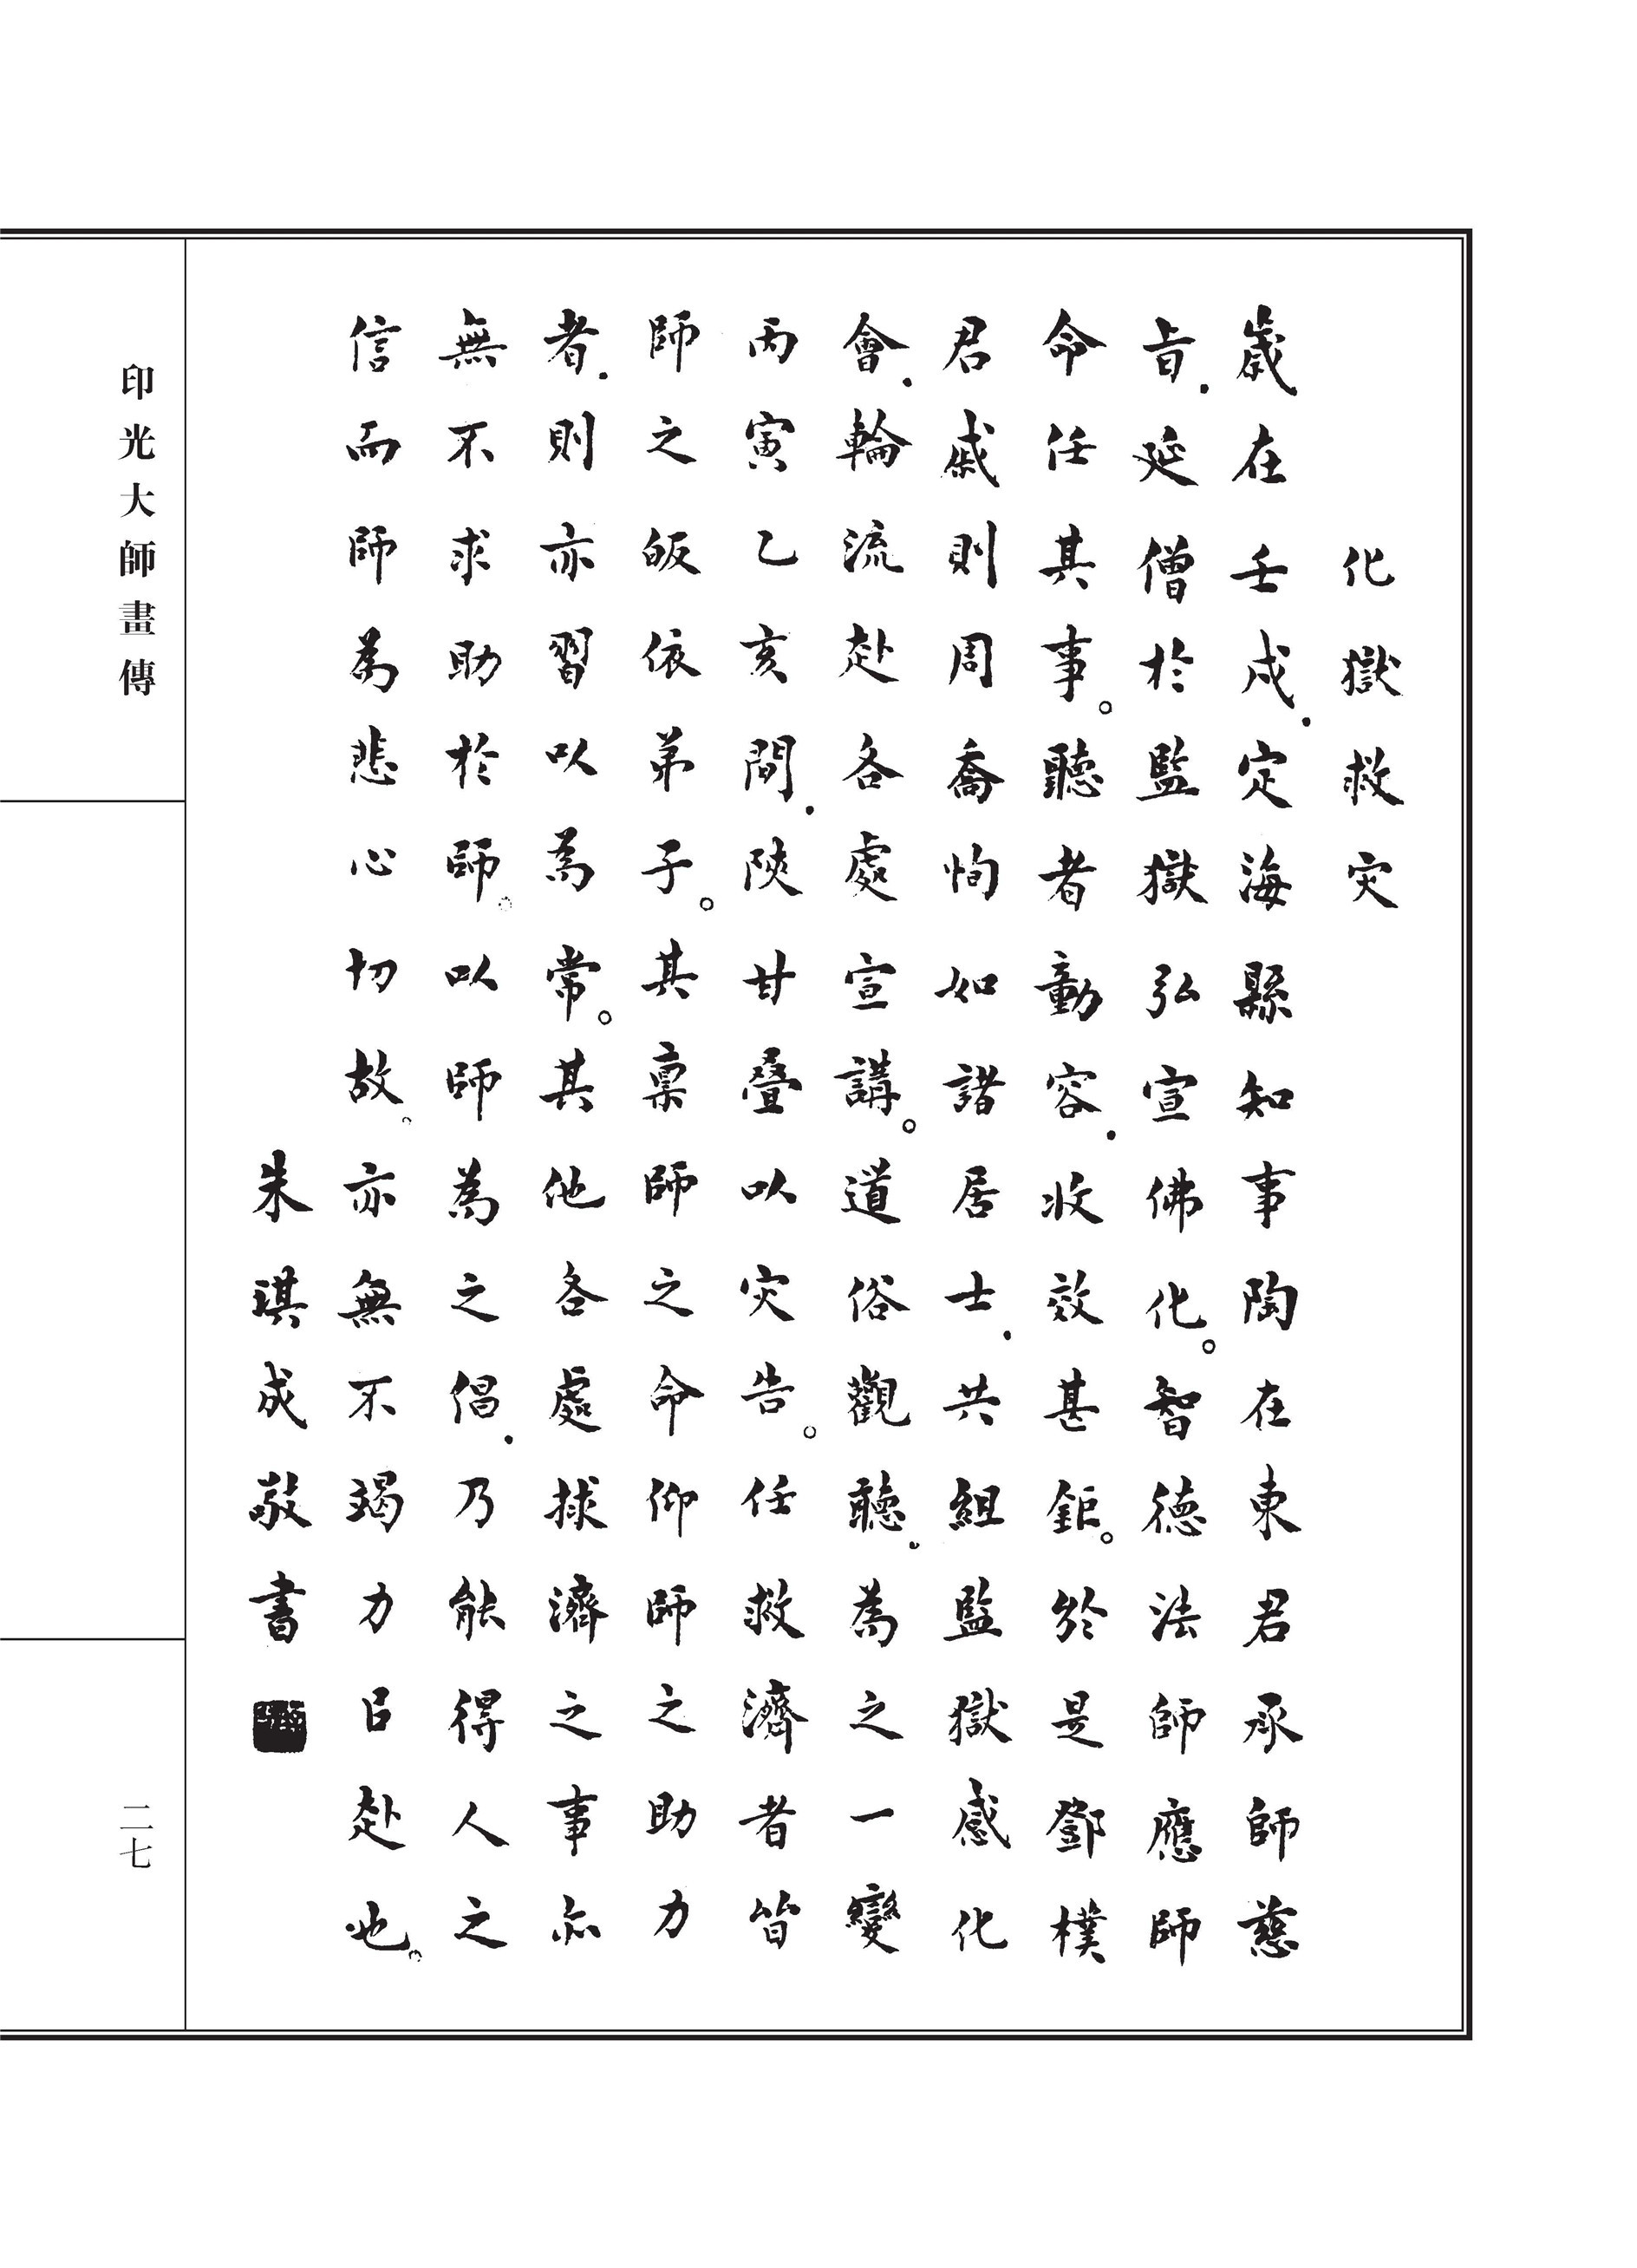 化獄救灾
歲在壬戌．定海縣知事陶在東君承師慈
旨．延僧於監獄弘宣佛化。智德法師應師
命任其事。聽者動容．收效甚鉅。於是鄧樸
君戚則周喬恂如諸居士．共組監獄感化
會．輪流赴各處宣講。道俗觀聽．為之一變
丙寅乙亥間．陝甘疊以灾告。任救濟者皆
師之皈依弟子。其稟師之命仰師之助力
者．則亦習以為常。其他各處捄濟之事亦
無不求助於師。以師為之倡．乃能得人之
信而師為悲心切故。亦無不竭力㠯赴也。
朱琪成敬書
印光大師畫傳
二七